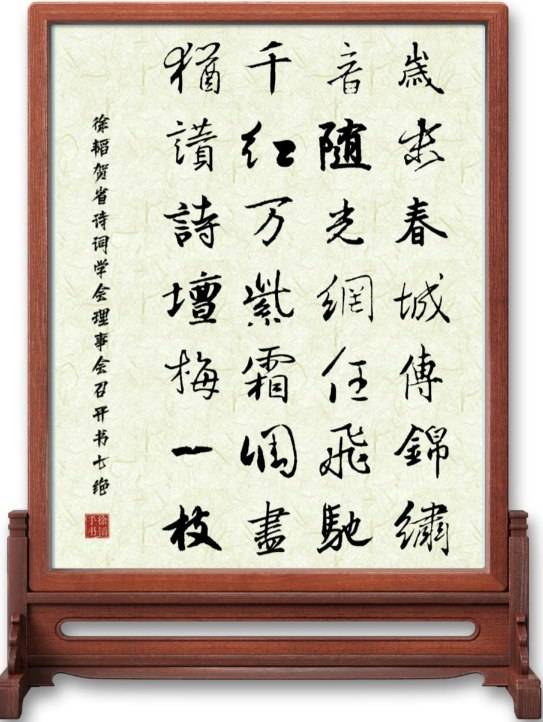 歲春城傳錦繡
音随光網任飛馳
千红万紫霜凋盡
猶讀詩壇梅一枝
徐韬贺省诗词学会理事会召开书七绝